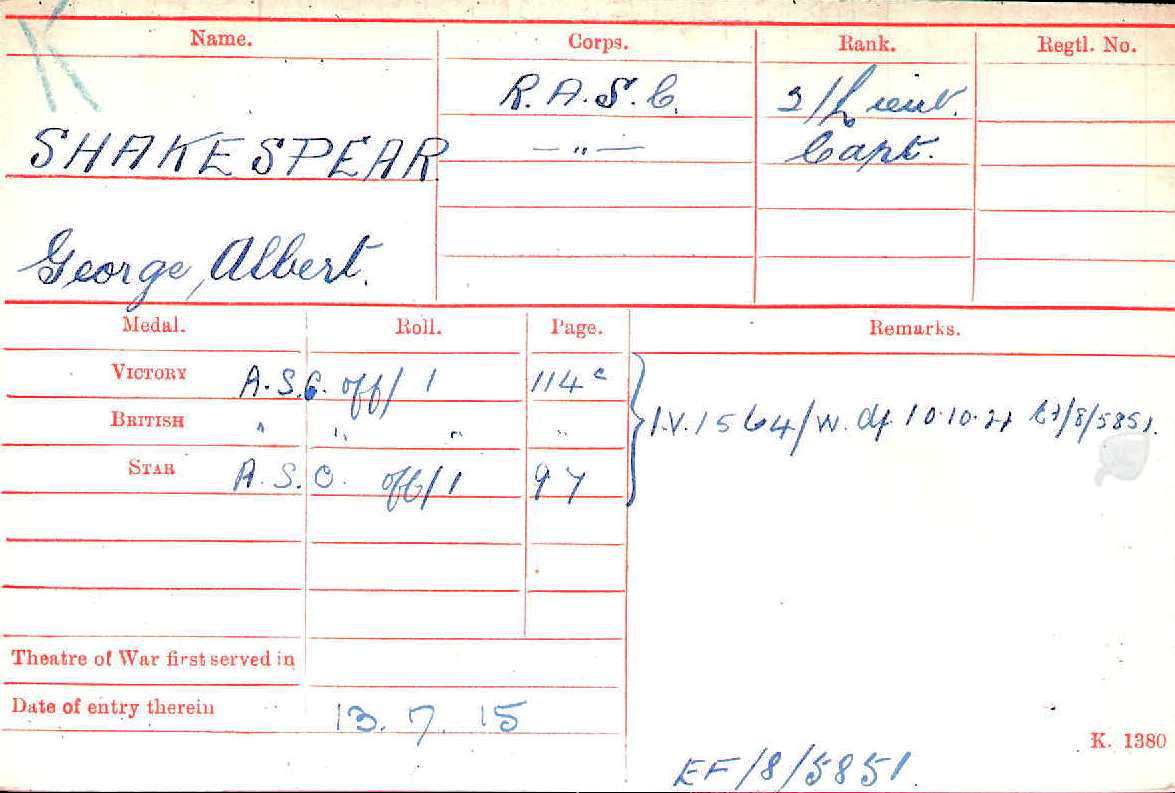 K
Name. Corps. Rank. Regtl. No.
R.A.S.C. 2/Lieut.
SHAKESPEAR — " — Capt.
George Albert.
Medal. Roll. Page. Remarks.
VICTORY A.S.C. off/1 114c
BRITISH " " " " I.V. 1564/W. df 10.10.22 E7/8/5851.
STAR A.S.C. off/1 97
Theatre of War first served in
Date of entry therein 13.7.15
K. 1380
EF/8/5851.